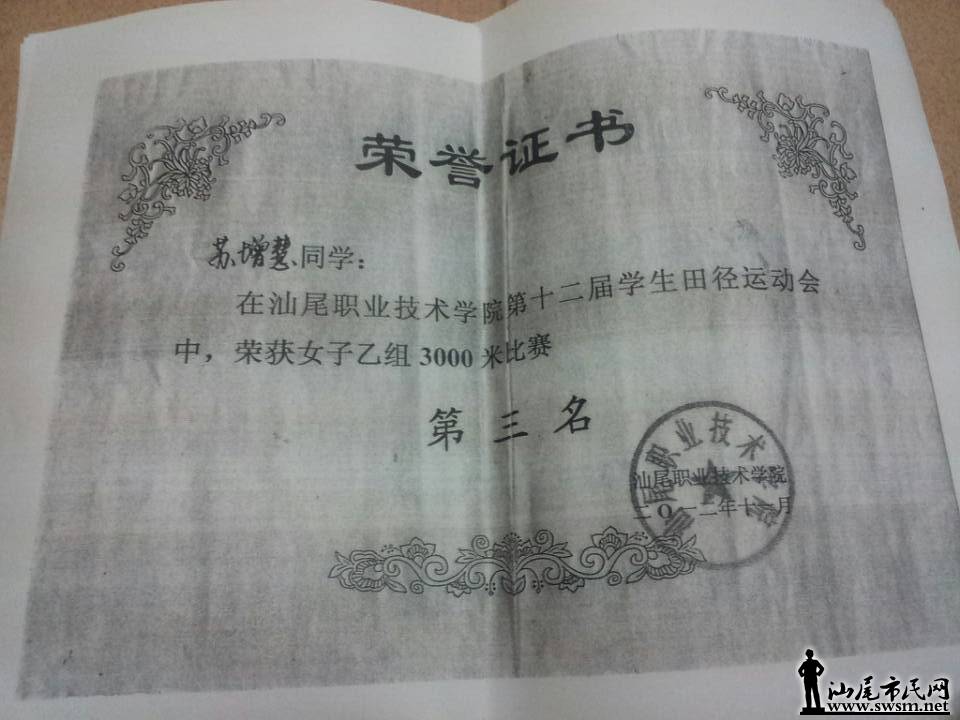 荣誉证书
苏增慧同学：
在汕尾职业技术学院第十二届学生田径运动会
中，荣获女子乙组 3000 米比赛
第三名
汕尾职业技术学院
汕尾职业技术学院
二〇一二年十一月
汕尾市民网
www.swsm.net